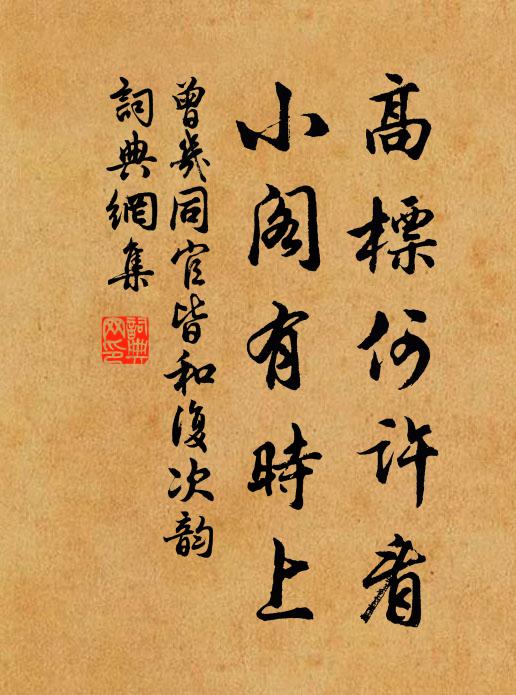 高標何許看
小閣有時上
曾幾同官皆和復次韵
詞典網集
詞典网印